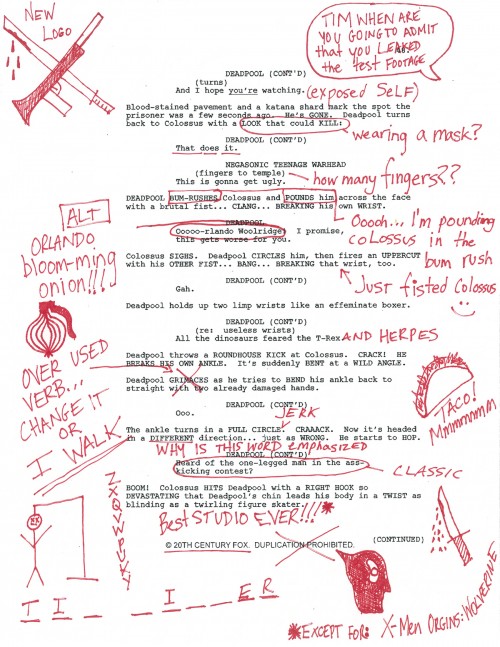 NEW
LOGO
TIM WHEN ARE
YOU GOING TO ADMIT
that you LEAKED
the test FOOTAGE
DEADPOOL (CONT'D)
(turns)
And I hope you're watching.
(exposed SELF)
Blood-stained pavement and a katana shard mark the spot the
prisoner was a few seconds ago. He's GONE. Deadpool turns
back to Colossus with a LOOK that could KILL:
wearing a mask?
DEADPOOL (CONT'D)
That does it.
NEGASONIC TEENAGE WARHEAD
(fingers to temple)
This is gonna get ugly.
how many fingers??
DEADPOOL BUM-RUSHES Colossus and POUNDS him across the face
with a brutal fist... CLANG... BREAKING his own WRIST.
Ooooh... I'm pounding
COLOSSUS in the
bum rush
ALT
ORLANDO
bloom-ming
onion!!!
DEADPOOL
Ooooo-rlando Woolridge! I promise,
this gets worse for you.
Colossus SIGHS. Deadpool CIRCLES him, then fires an UPPERCUT
with his OTHER FIST... BANG... BREAKING that wrist, too.
Just fisted Colossus
DEADPOOL (CONT'D)
Gah.
Deadpool holds up two limp wrists like an effeminate boxer.
DEADPOOL (CONT'D)
(re: useless wrists)
All the dinosaurs feared the T-Rex
AND HERPES
Deadpool throws a ROUNDHOUSE KICK at Colossus. CRACK! HE
BREAKS HIS OWN ANKLE. It's suddenly BENT at a WILD ANGLE.
OVER USED
VERB...
CHANGE IT
OR
I WALK
Deadpool GRIMACES as he tries to BEND his ankle back to
straight with two already damaged hands.
TACO!
Mmmmmmm
DEADPOOL (CONT'D)
Ooo.
JERK
The ankle turns in a FULL CIRCLE. CRAAACK. Now it's headed
in a DIFFERENT direction... just as WRONG. He starts to HOP.
WHY IS THIS WORD emphasized
DEADPOOL (CONT'D)
Heard of the one-legged man in the ass-
kicking contest?
CLASSIC
BOOM! Colossus HITS Deadpool with a RIGHT HOOK so
DEVASTATING that Deadpool's chin leads his body in a TWIST as
blinding as a twirling figure skater.
Best STUDIO EVER!!!*
© 20TH CENTURY FOX. DUPLICATION PROHIBITED.
(CONTINUED)
I I _ _ _ I _ _ E R
*EXCEPT FOR: X-Men ORGINS: WOLVERINE